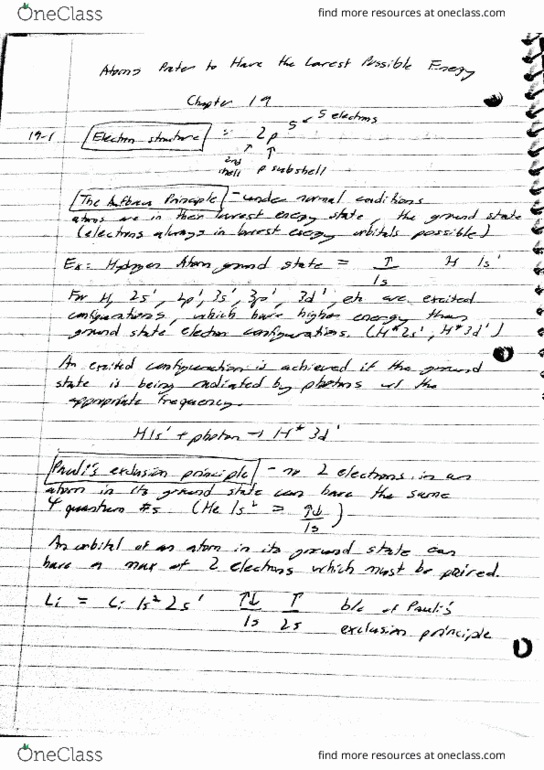 OneClass
find more resources at oneclass.com
Atoms Prefer to Have the Lowest Possible Energy
Chapter 19
19-1 Electron structure : 2p5 ← 5 electrons
2nd shell p subshell
The Aufbau Principle - under normal conditions
atoms are in their lowest energy state, the ground state
(electrons always in lowest energy orbitals possible)
Ex: Hydrogen Atom ground state = ↑ H 1s¹
1s
For H, 2s¹, 2p¹, 3s¹, 3p¹, 3d¹, etc are excited
configurations, which have higher energy than
ground state electron configurations. (H* 2s¹, H* 3d¹)
An excited configuration is achieved if the ground
state is being radiated by photons w/ the
appropriate frequency.
H1s¹ + photon → H* 3d¹
Pauli's exclusion principle - no 2 electrons in an
atom in its ground state can have the same
4 quantum #s. (He 1s² = ↑↓)
1s
An orbital of an atom in its ground state can
have a max of 2 electrons which must be paired.
Li = Li 1s² 2s¹ ↑↓ ↑ b/c of Pauli's
1s 2s exclusion principle
OneClass
find more resources at oneclass.com